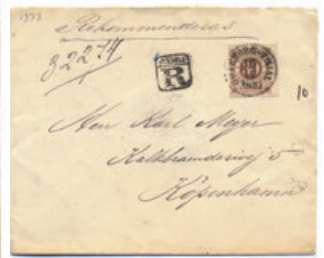 1933
Rekommenderas
3227
R
10
Herr Karl Meyer
Kalkbrænderivej 5
Köpenhamn